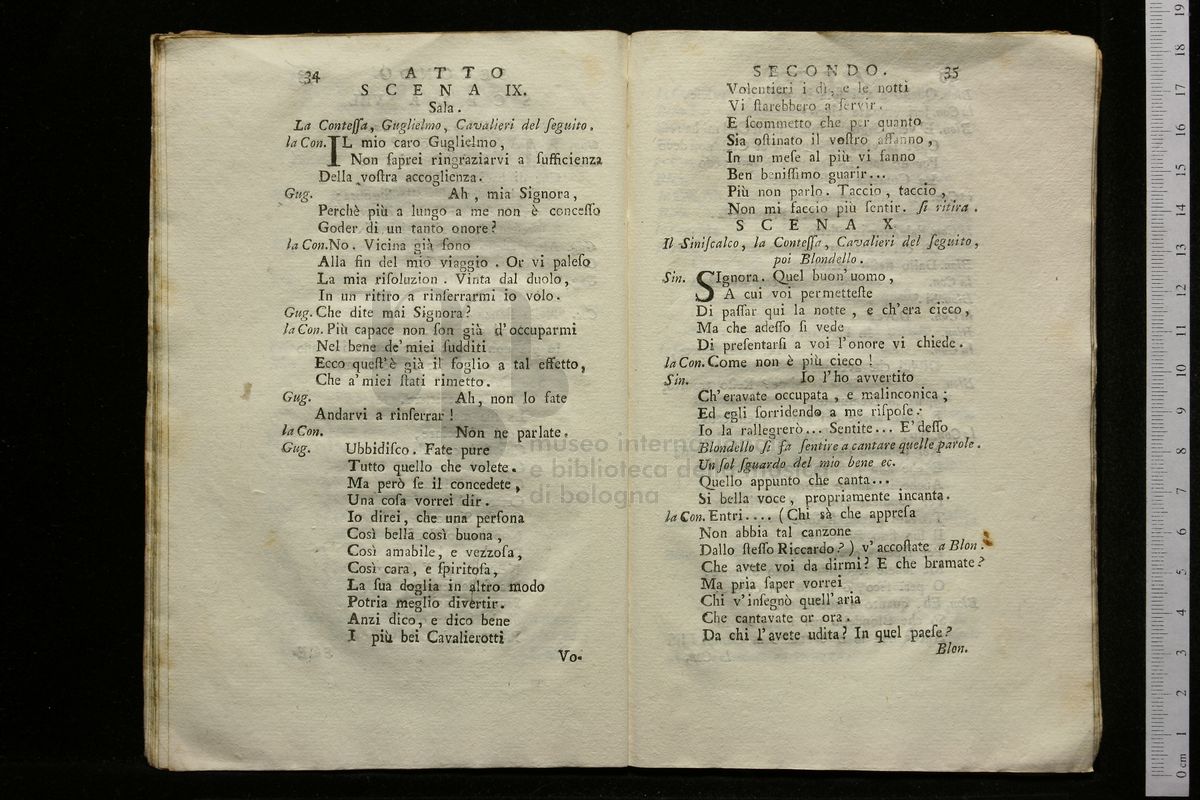 34 ATTO
SCENA IX.
Sala.
La Conteſſa, Guglielmo, Cavalieri del ſeguito.
la Con. IL mio caro Guglielmo,
Non ſaprei ringraziarvi a ſufficienza
Della voſtra accoglienza.
Gug. Ah, mia Signora,
Perchè più a lungo a me non è conceſſo
Goder di un tanto onore?
la Con. No. Vicina già ſono
Alla fin del mio viaggio. Or vi paleſo
La mia riſoluzion. Vinta dal duolo,
In un ritiro a rinſerrarmi io volo.
Gug. Che dite mai Signora?
la Con. Più capace non ſon già d'occuparmi
Nel bene de' miei ſudditi
Ecco queſt'è già il foglio a tal effetto,
Che a' miei ſtati rimetto.
Gug. Ah, non lo fate
Andarvi a rinſerrar!
la Con. Non ne parlate.
Gug. Ubbidiſco. Fate pure
Tutto quello che volete.
Ma però ſe il concedete,
Una coſa vorrei dir.
Io direi, che una perſona
Così bella così buona,
Così amabile, e vezzoſa,
Così cara, e ſpiritoſa,
La ſua doglia in altro modo
Potria meglio divertir.
Anzi dico, e dico bene
I più bei Cavalierotti
Vo-
SECONDO. 35
Volentieri i dì, e le notti
Vi ſtarebbero a ſervir.
E ſcommetto che per quanto
Sia oſtinato il voſtro affanno,
In un meſe al più vi fanno
Ben beniſſimo guarir...
Più non parlo. Taccio, taccio,
Non mi faccio più ſentir. ſi ritira.
SCENA X
Il Siniſcalco, la Conteſſa, Cavalieri del ſeguito,
poi Blondello.
Sin. SIgnora. Quel buon'uomo,
A cui voi permetteſte
Di paſſar qui la notte, e ch'era cieco,
Ma che adeſſo ſi vede
Di preſentarſi a voi l'onore vi chiede.
la Con. Come non è più cieco!
Sin. Io l'ho avvertito
Ch'eravate occupata, e malinconica;
Ed egli ſorridendo a me riſpoſe:
Io la rallegrerò... Sentite... E' deſſo
Blondello ſi fa ſentire a cantare quelle parole.
Un ſol ſguardo del mio bene ec.
Quello appunto che canta...
Si bella voce, propriamente incanta.
la Con. Entri.... (Chi sà che appreſa
Non abbia tal canzone
Dallo ſteſſo Riccardo?) v'accoſtate a Blon.
Che avete voi da dirmi? E che bramate?
Ma pria ſaper vorrei
Chi v'inſegnò quell'aria
Che cantavate or ora.
Da chi l'avete udita? In quel paeſe?
Blon.
museo interna
e biblioteca de
di bologna